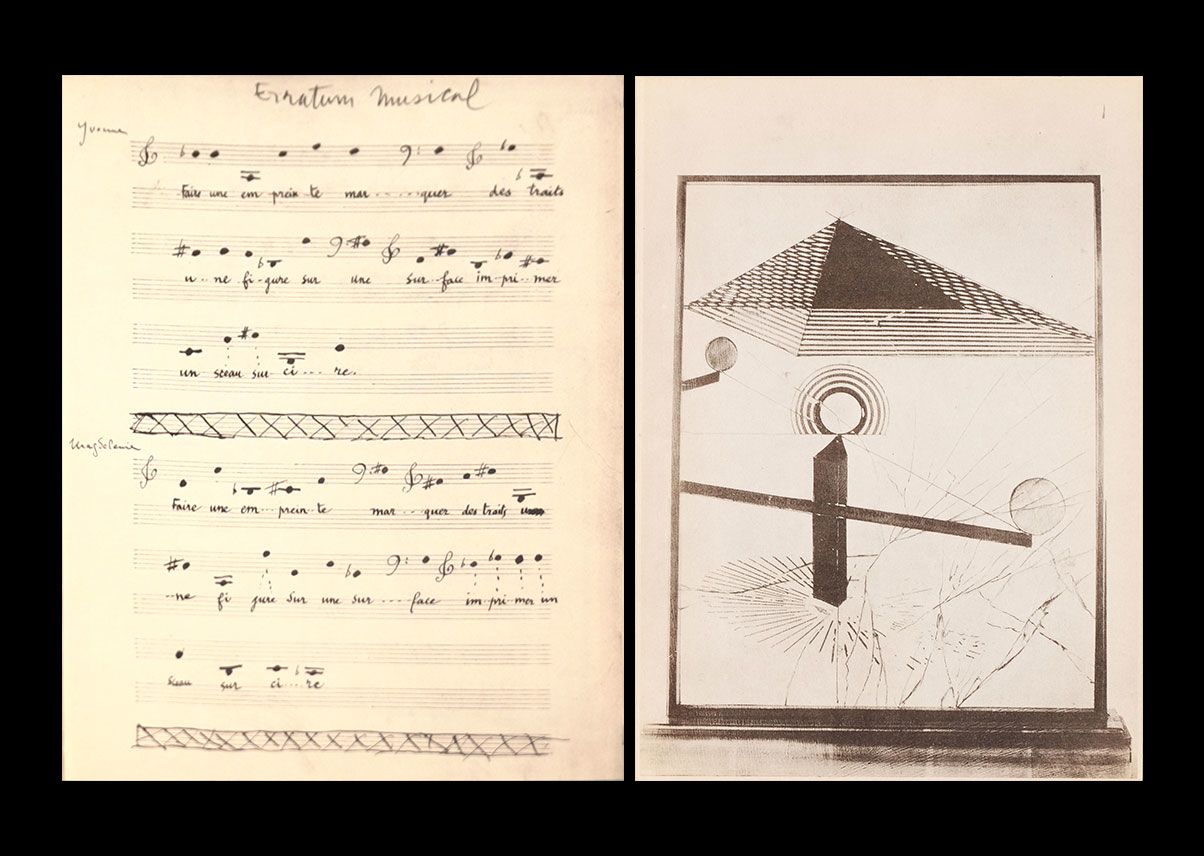 Erratum Musical
Yvonne
Faire une em prein te mar....quer des traits
u..ne fi-gure sur une sur-face im-pri-mer
un sceau sur ci....re.
Magdeleine
Faire une em..prein te mar...quer des traits
..ne fi gure sur une sur....face im-pri-mer un
sceau sur ci....re